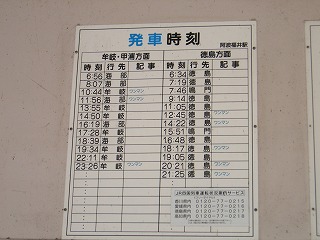 発車時刻
阿波福井駅
牟岐・甲浦方面
時刻 行先 記事
6:56 海部
8:07 海部
10:44 牟岐 ワンマン
11:56 海部 ワンマン
13:55 牟岐
14:50 牟岐
16:19 海部
17:28 牟岐
18:28 海部
19:34 牟岐
22:11 牟岐
23:26 牟岐 ワンマン
徳島方面
時刻 行先 記事
6:34 徳島
7:19 徳島
7:46 鳴門
9:14 徳島
10:45 徳島 ワンマン
12:05 徳島 ワンマン
14:22 徳島 ワンマン
15:51 鳴門
16:48 徳島
18:17 徳島 ワンマン
19:05 徳島
20:21 徳島
21:25 徳島 ワンマン
JR四国列車運転状況案内サービス
香川県内 0120-77-0215
愛媛県内 0120-77-0216
徳島県内 0120-77-0217
高知県内 0120-77-0218